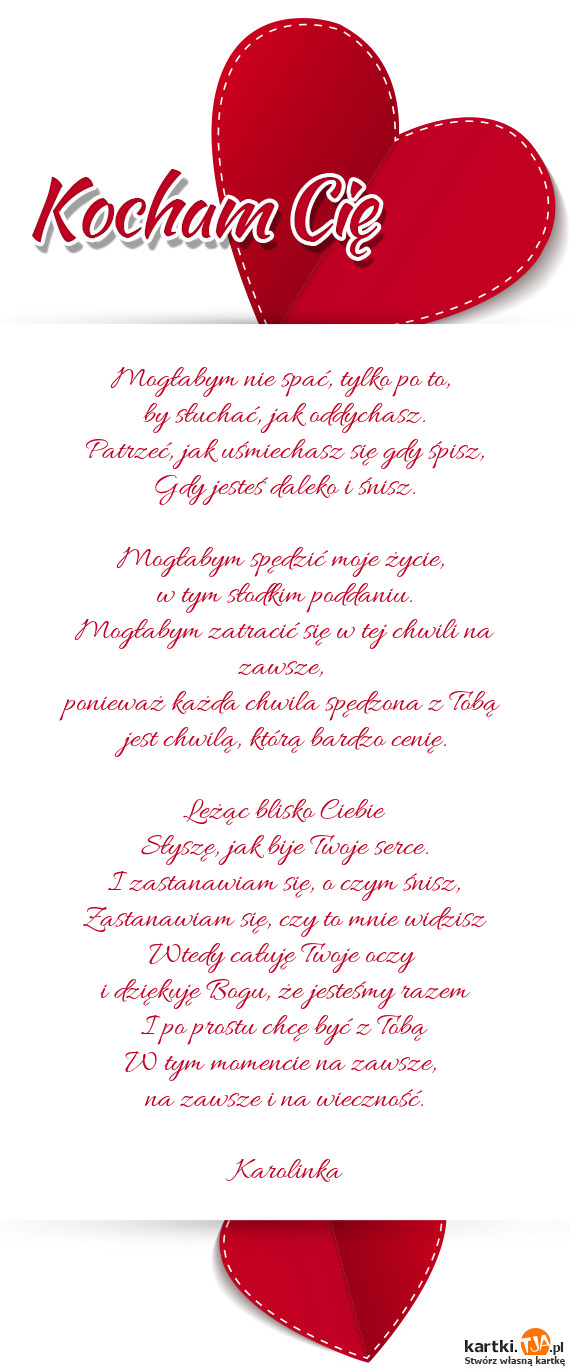 Kocham Cię
Mogłabym nie spać, tylko po to,
by słuchać, jak oddychasz.
Patrzeć, jak uśmiechasz się gdy śpisz,
Gdy jesteś daleko i śnisz.
Mogłabym spędzić moje życie,
w tym słodkim poddaniu.
Mogłabym zatracić się w tej chwili na
zawsze,
ponieważ każda chwila spędzona z Tobą
jest chwilą, którą bardzo cenię.
Leżąc blisko Ciebie
Słyszę, jak bije Twoje serce.
I zastanawiam się, o czym śnisz,
Zastanawiam się, czy to mnie widzisz
Wtedy całuję Twoje oczy
i dziękuję Bogu, że jesteśmy razem
I po prostu chcę być z Tobą
W tym momencie na zawsze,
na zawsze i na wieczność.
Karolinka
kartki.TJA.pl
Stwórz własną kartkę